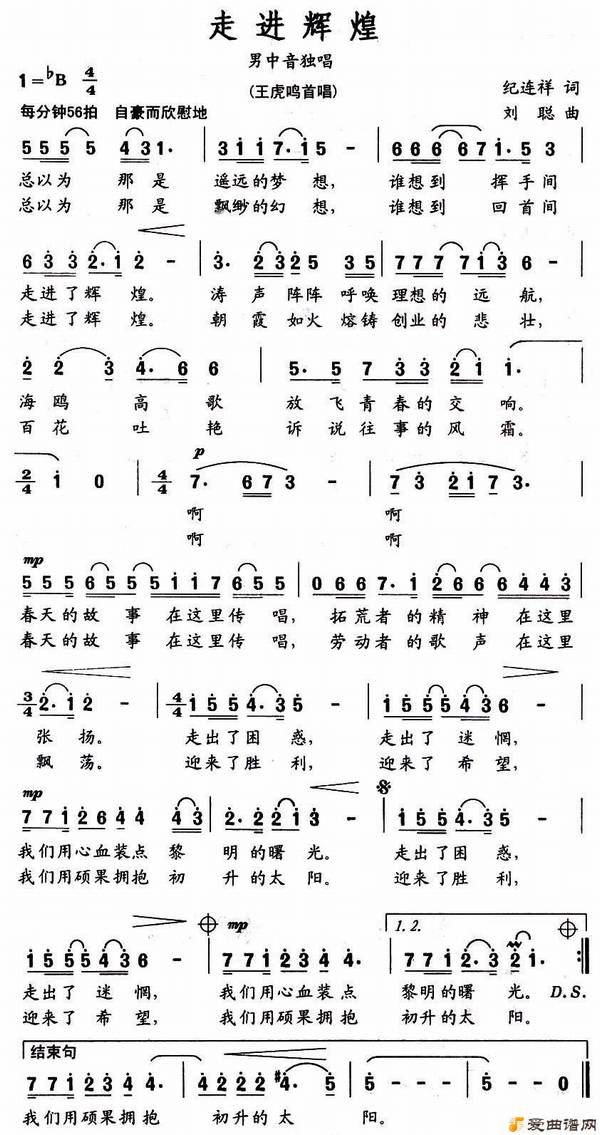 走进辉煌
男中音独唱
1=♭B 4/4
(王虎鸣首唱)
纪连祥 词
每分钟56拍 自豪而欣慰地
刘 聪 曲
5 5 5 5 4 3 1. | 3 1 1 7. 1 5 - | 6 6 6 6 6 7 1. 5 3 |
总以为 那是 遥远的梦 想, 谁想到 挥手间
总以为 那是 飘缈的幻 想, 谁想到 回首间
6 3 3 2. 1 2 - | 3. 2 3 2 5 3 5 | 7 7 7 7 1 2 3 6 - |
走进了辉 煌。 涛声阵阵呼唤 理想的 远 航,
走进了辉 煌。 朝霞如火熔铸 创业的 悲 壮,
2 2 3 4. 6 6 | 5. 5 7 3 3 2 1. |
海鸥 高 歌 放飞青春的交 响。
百花 吐 艳 诉说往事的风 霜。
p
2/4 1 0 | 4/4 7. 6 7 3 - | 7 3 2 1 7 3. |
啊 啊
啊 啊
mp
5 5 5 6 5 5 5 1 1 7 6 5 5 | 0 6 6 7. 1 2 6 6 6 4 4 3 |
春天的故 事 在这里传 唱, 拓荒者 的精 神 在这里
春天的故 事 在这里传 唱, 劳动者 的歌 声 在这里
3/4 2. 1 2 - | 4/4 1 5 5 4. 3 5 - | 1 5 5 5 4 3 6 - |
张 扬。 走出了困 惑, 走出了 迷 惘,
飘 荡。 迎来了胜 利, 迎来了 希 望,
mp
7 7 1 2 6 4 4 4 3 | 2. 2 2 1 3 - | 1 5 5 5 4. 3 5 |
我们用心血装点 黎 明的曙 光。 走出了困 惑,
我们用硕果拥抱 初 升的太 阳。 迎来了胜 利,
mp 1. 2.
1 5 5 5 4 3 6 - | 7 7 1 2 3 4 4. | 7 7 1 2. 3 2 1. :|
走出了 迷 惘, 我们用心血装点 黎明的曙 光。 D.S.
迎来了 希 望, 我们用硕果拥抱 初升的太 阳。
结束句
7 7 1 2 3 4 4. | 4 2 2 2 #4. 5 5 - |
我们用硕果拥抱 初升的太 阳。
爱曲谱网